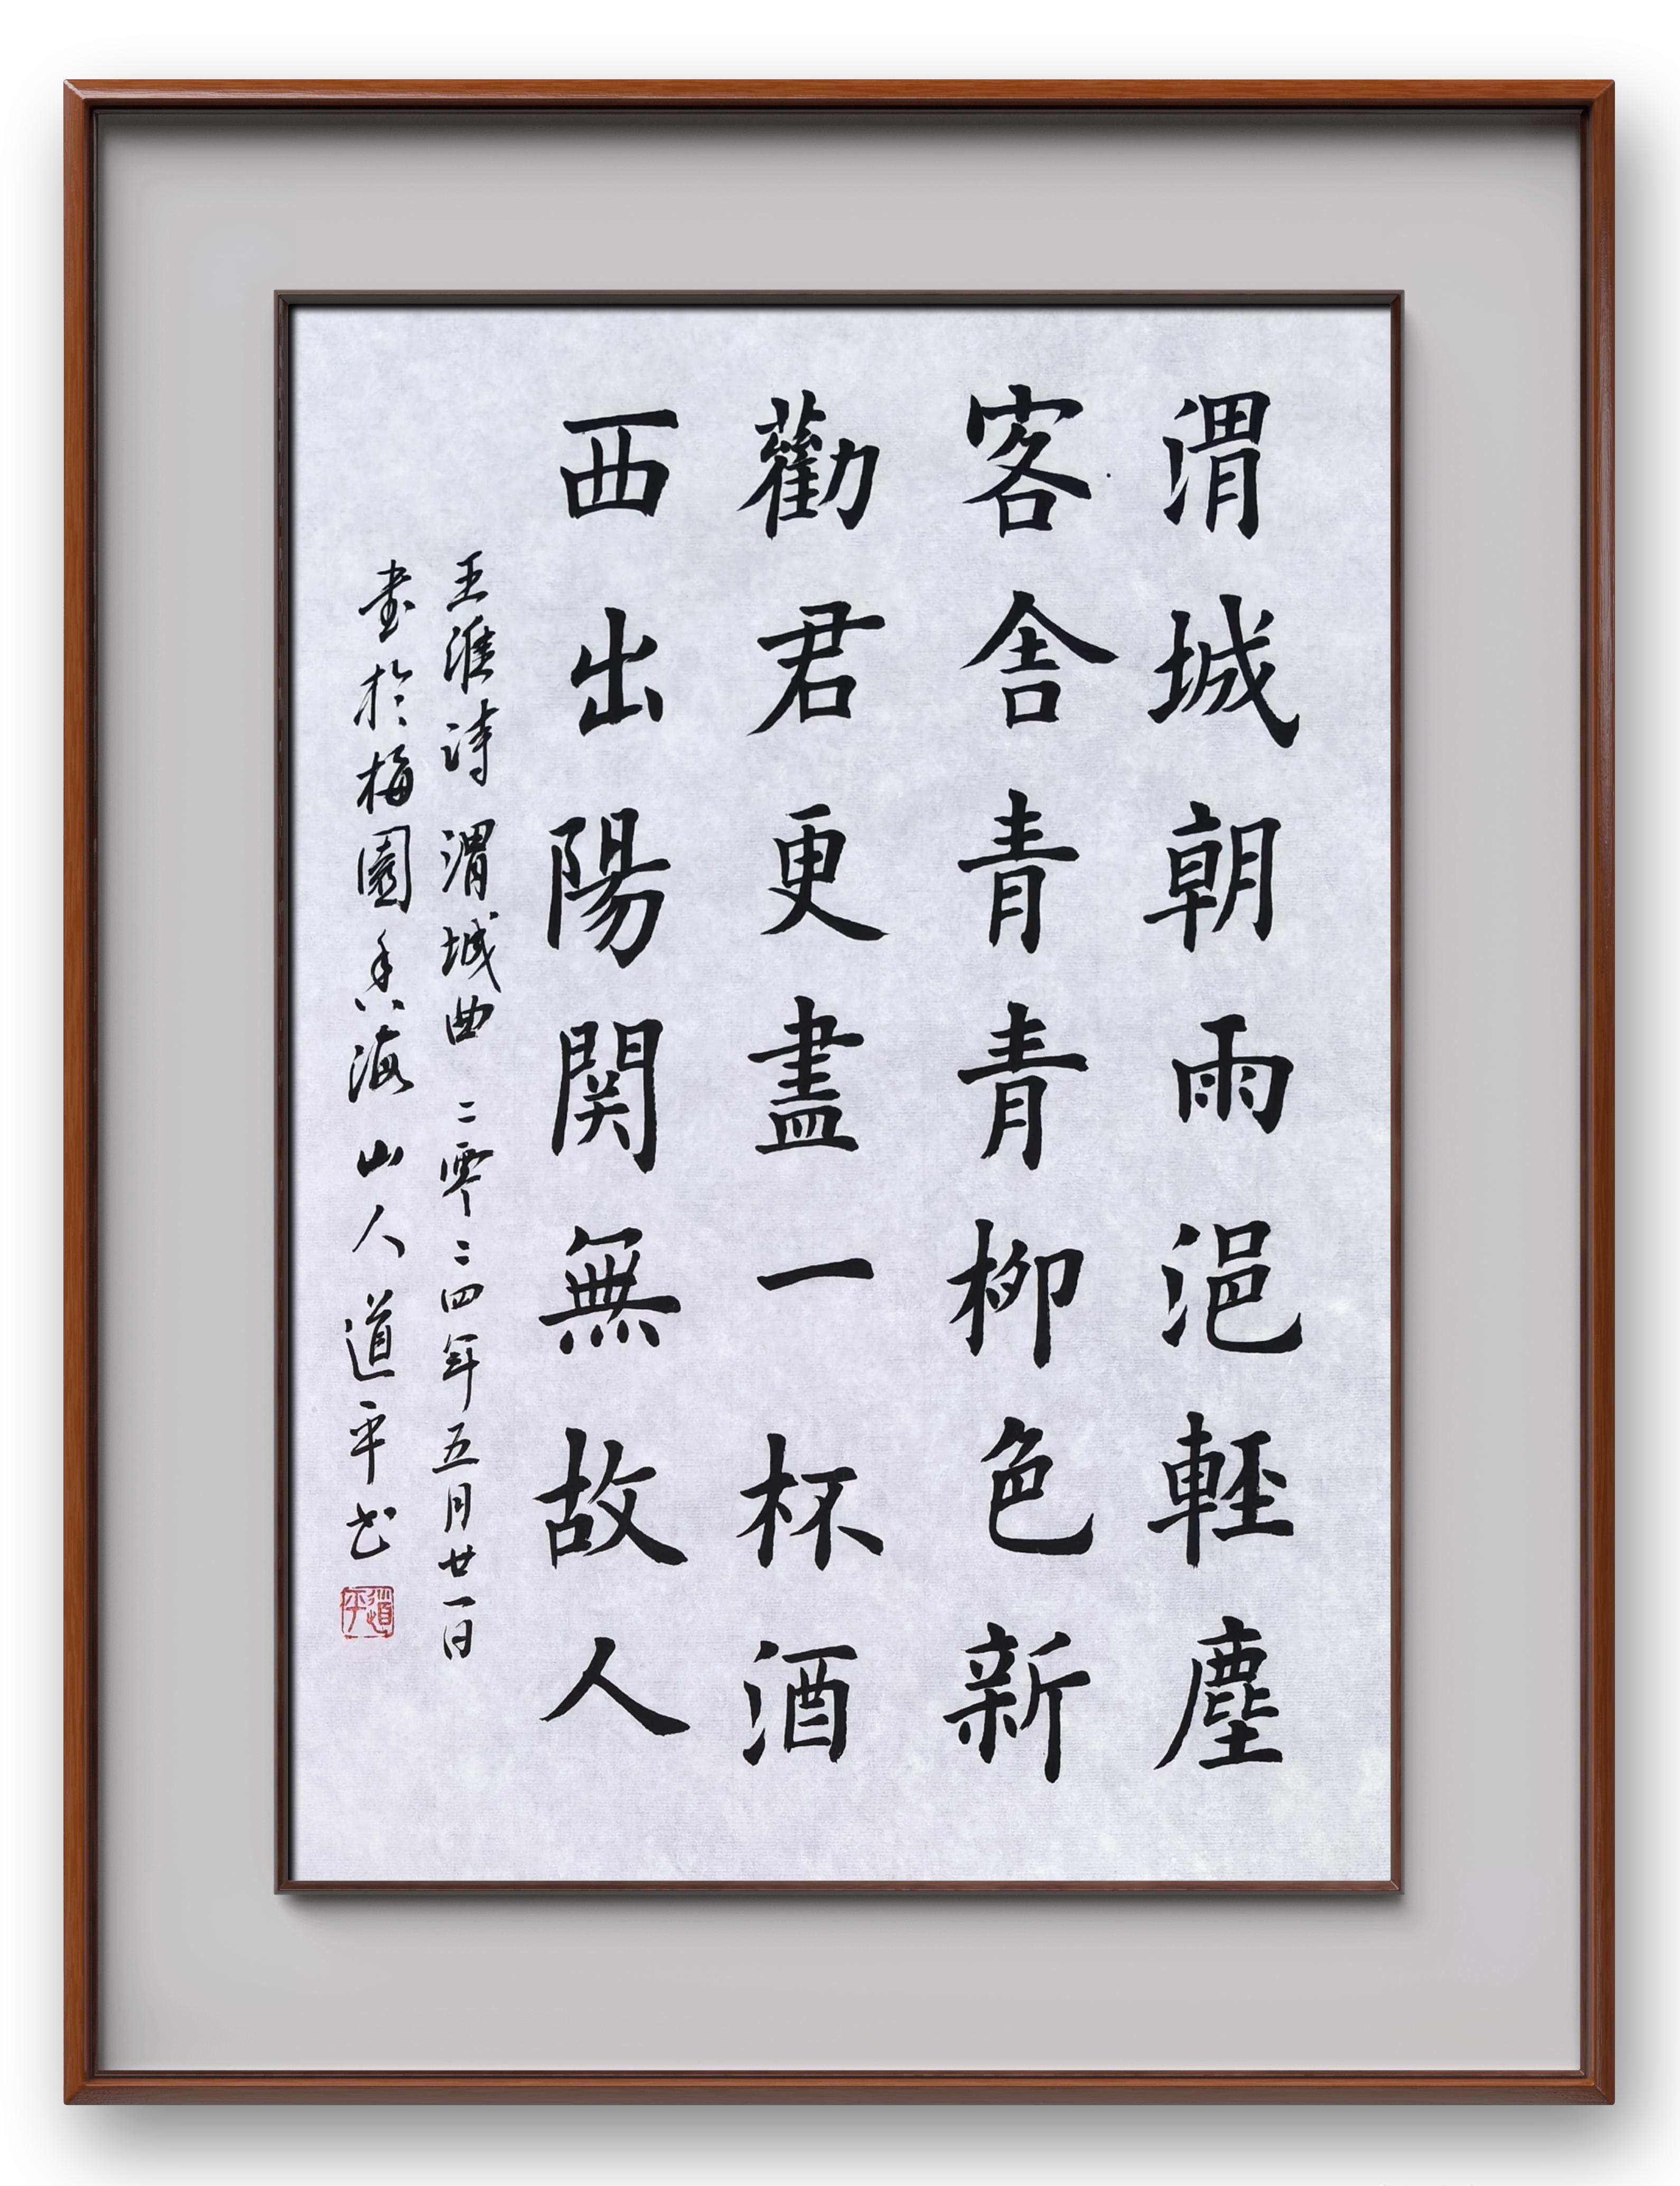 渭城朝雨浥輕塵
客舍青青柳色新
勸君更盡一杯酒
西出陽関無故人
王維詩 渭城曲 二零二四年五月廿一日
書於梅園香海 山人道平书
道平